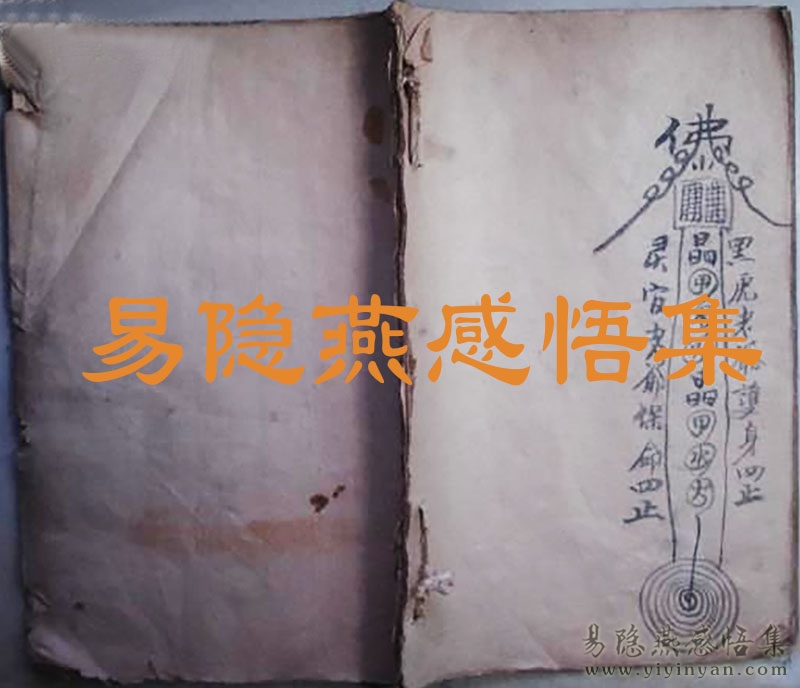 佛
黑虎老爺護身四正
晶
甲
晶
甲
灵官老爺保命四正
易隐燕感悟集
易隐燕感悟集
www.yiyinyan.com